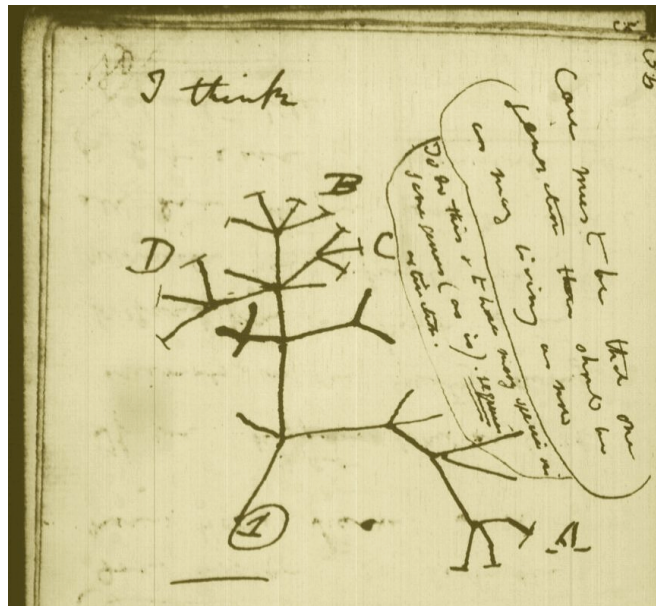 I think
B
D
C
A
1
Case must be that one
generation then should be
as many living as now
To do this & to have many species in
same genus (as is). requires
extinction.
36